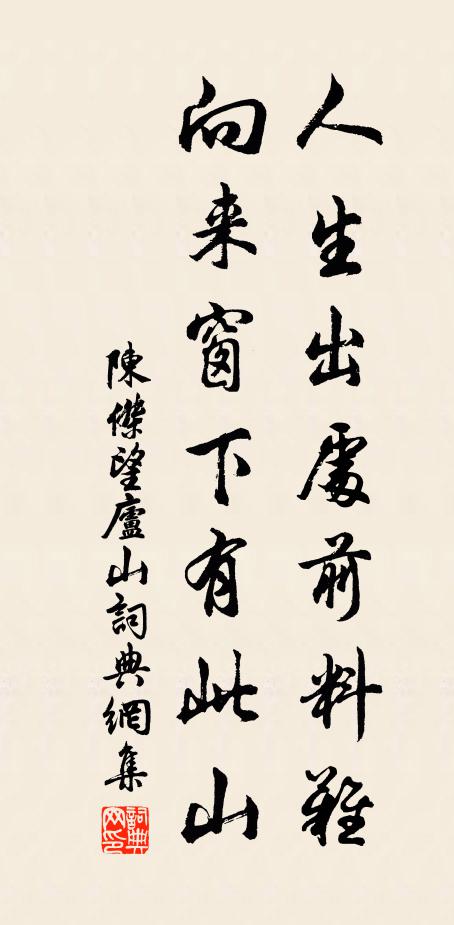 人生出處前料難
向来窗下有此山
陳傑望廬山詞典網集
詞典网印